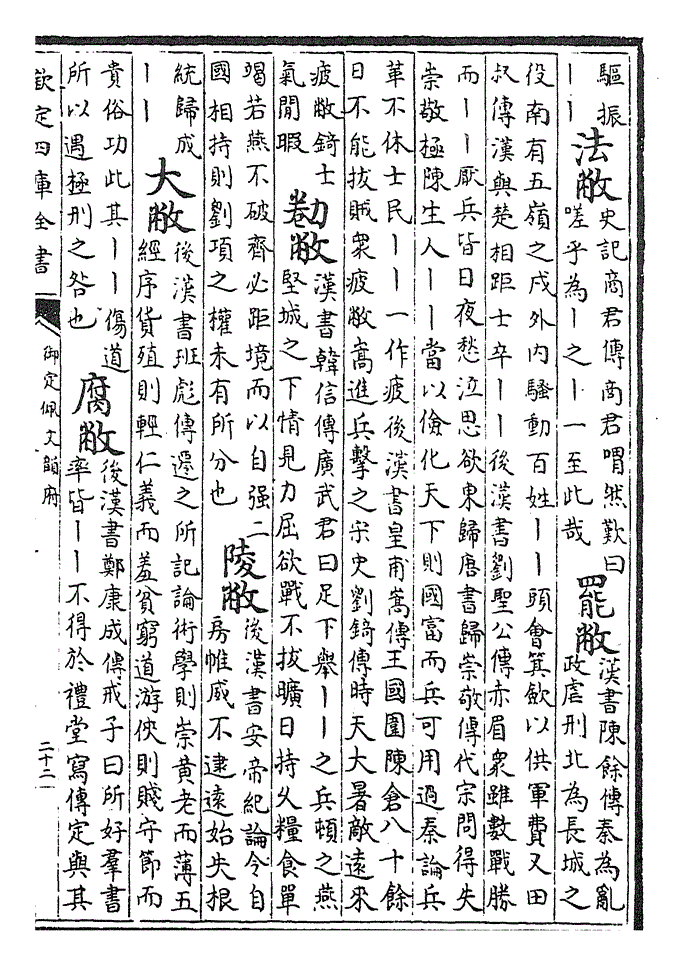 驅振
丨丨
法敝
史記商君傳商君喟然歎曰
嗟乎為丨之丨一至此哉
罷敝
漢書陳餘傳秦為亂
政虐刑北為長城之
役南有五嶺之戍外内騷動百姓丨丨頭會箕斂以供軍費又田
叔傳漢與楚相距士卒丨丨後漢書劉聖公傳赤眉衆雖數戰勝
而丨丨厭兵皆日夜愁泣思欲東歸唐書歸崇敬傳代宗問得失
崇敬極陳生人丨丨當以儉化天下則國富而兵可用過秦論兵
革不休士民丨丨一作疲後漢書皇甫嵩傳王國圍陳倉八十餘
日不能拔賊衆疲敝嵩進兵擊之宋史劉錡傳時天大暑敵遠來
疲敝錡士
氣閒暇
勌敝
漢書韓信傳廣武君曰足下舉丨丨之兵頓之燕
堅城之下情見力屈欲戰不拔曠日持久糧食單
竭若燕不破齊必距境而以自强二
國相持則劉項之權未有所分也
陵敝
後漢書安帝紀論令自
房帷威不逮遠始失根
統歸成
丨丨
大敝
後漢書班彪傳遷之所記論術學則崇黄老而薄五
經序貨殖則輕仁義而羞貧窮道游俠則賤守節而
貴俗功此其丨丨傷道
所以遇極刑之咎也
腐敝
後漢書鄭康成傳戒子曰所好羣書
率皆丨丨不得於禮堂寫傳定與其
欽定四庫全書
御定佩文韻府
二十二